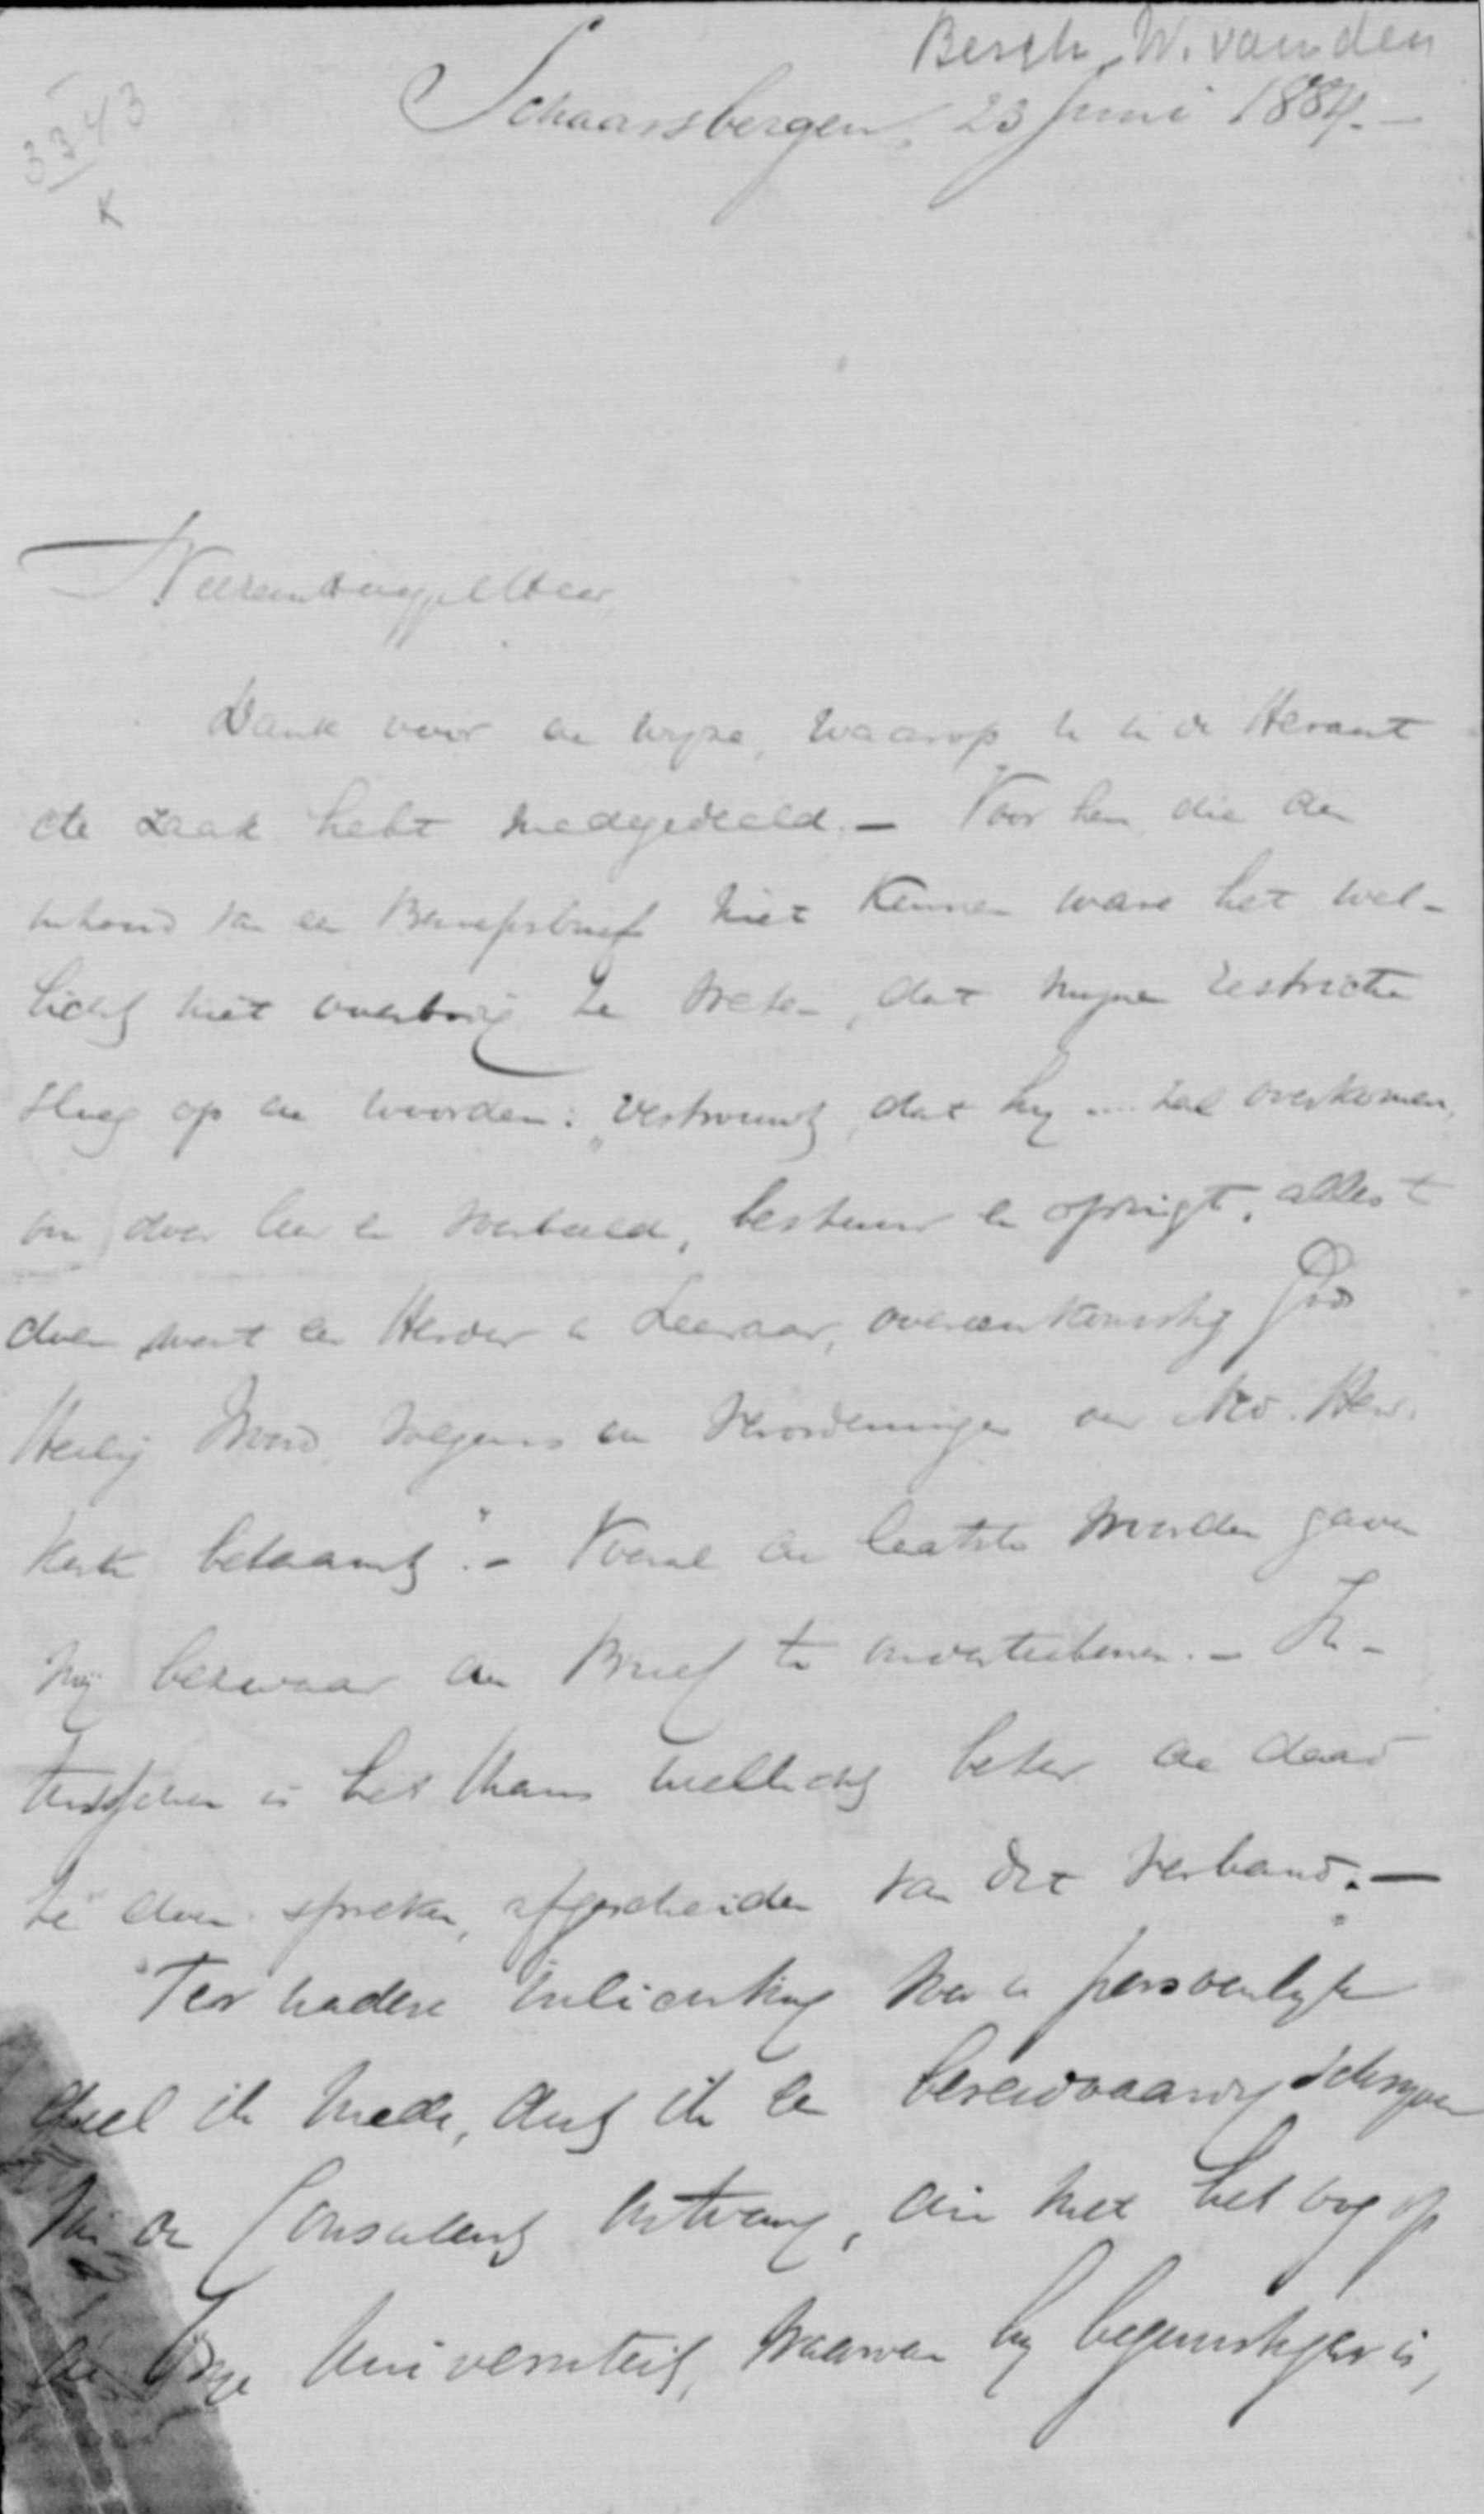 Bergh, W. van den
Schaarsbergen, 23 Juni 1884.-
3343
K
Dank voor de wijze, waarop U in de Heraut
de zaak hebt medegedeeld. - Voor hen, die den
inhoud van een Beroepsbrief niet kennen ware het wel-
licht niet overbodig te weten, dat mijne restrictie
sloeg op de woorden: "vertrouwend, dat hij .... zal overkomen,
om door leer en voorbeeld, bestuur en opzigt, alles te
doen, wat een Herder en Leeraar, overeenkomstig Gods
Heilig Woord volgens de Verordeningen der Ned. Herv.
Kerk betaamt." - Vooral de laatste woorden gaven
mij bezwaar den Brief te onderteekenen. - In-
tusschen is het thans wellicht beter de daad
te doen spreken, afgescheiden van dit verband. -
Ter nadere inlichting voor U persoonlijk
deel ik mede, dat ik een schrijven
van den Consulent ontving, die met het oog op
de Vrije Universiteit, waarvan hij begunstiger is,